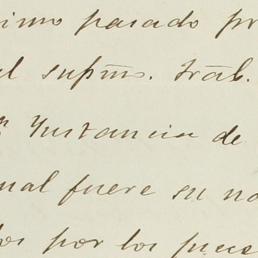 imo pasado pr
al supmo. trab.
Instancia de
ual fuere su na
los por los juece